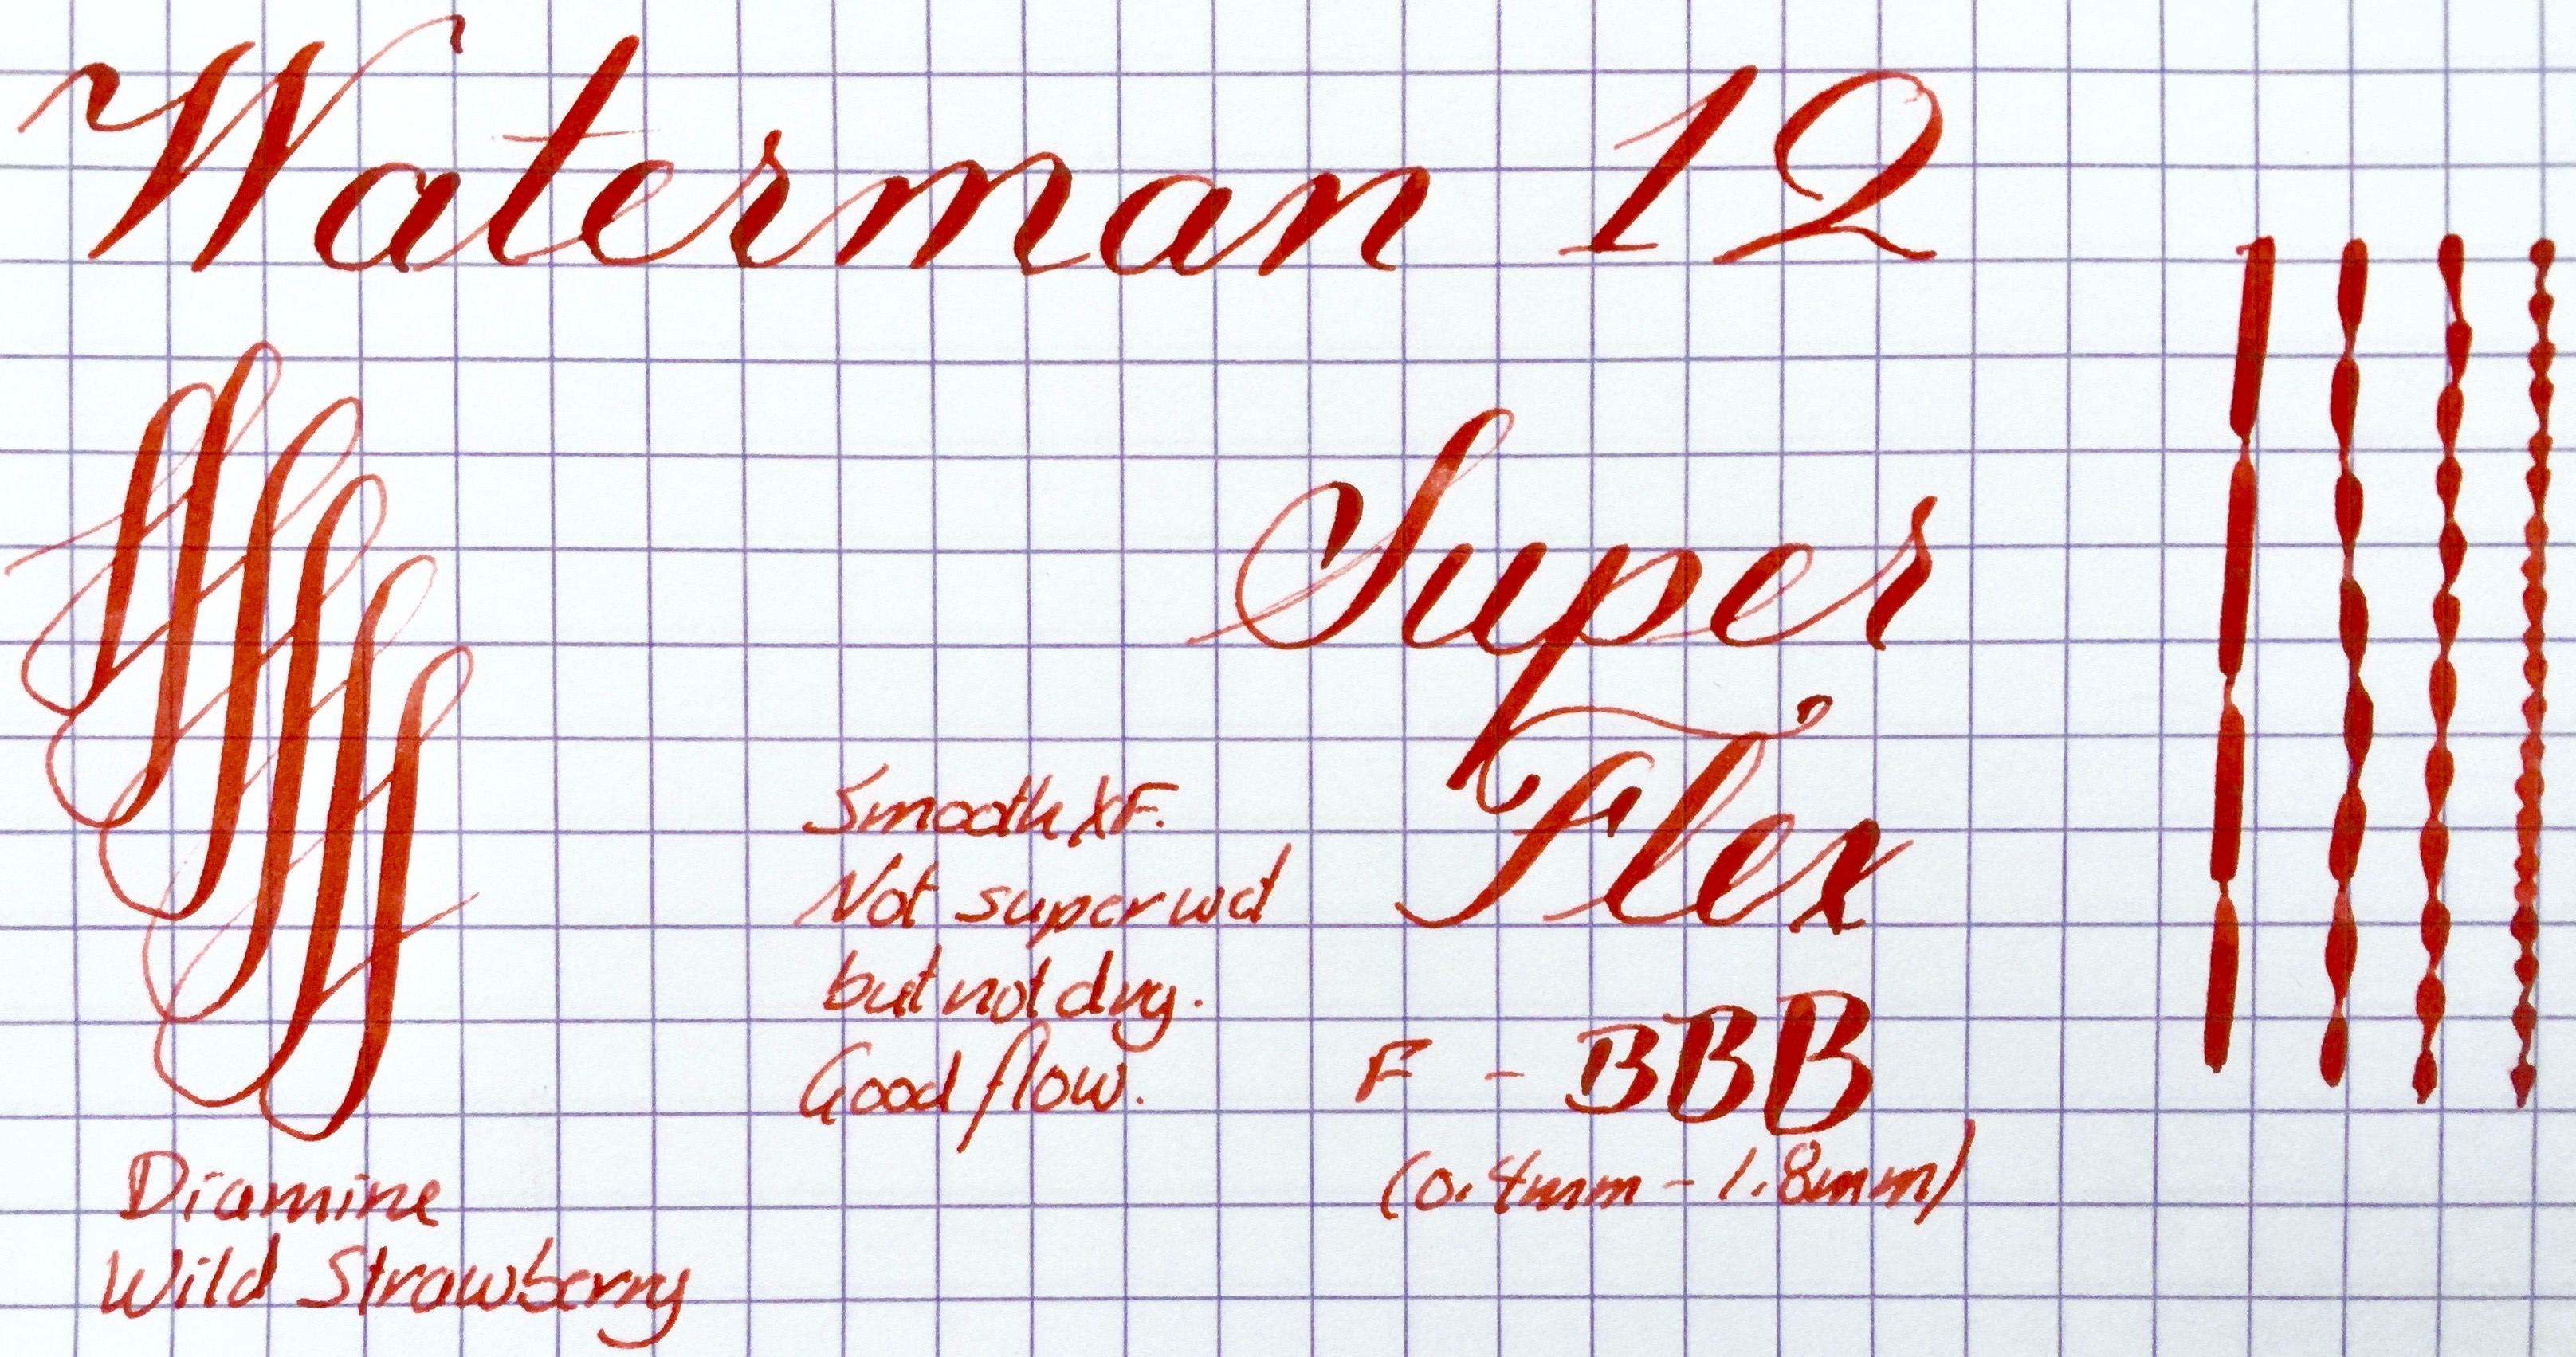 Waterman 12
Super
Flex
Smooth XF.
Not super wet
but not dry.
Good flow.
F - BBB
(0.4mm - 1.8mm)
Diamine
Wild Strawberry